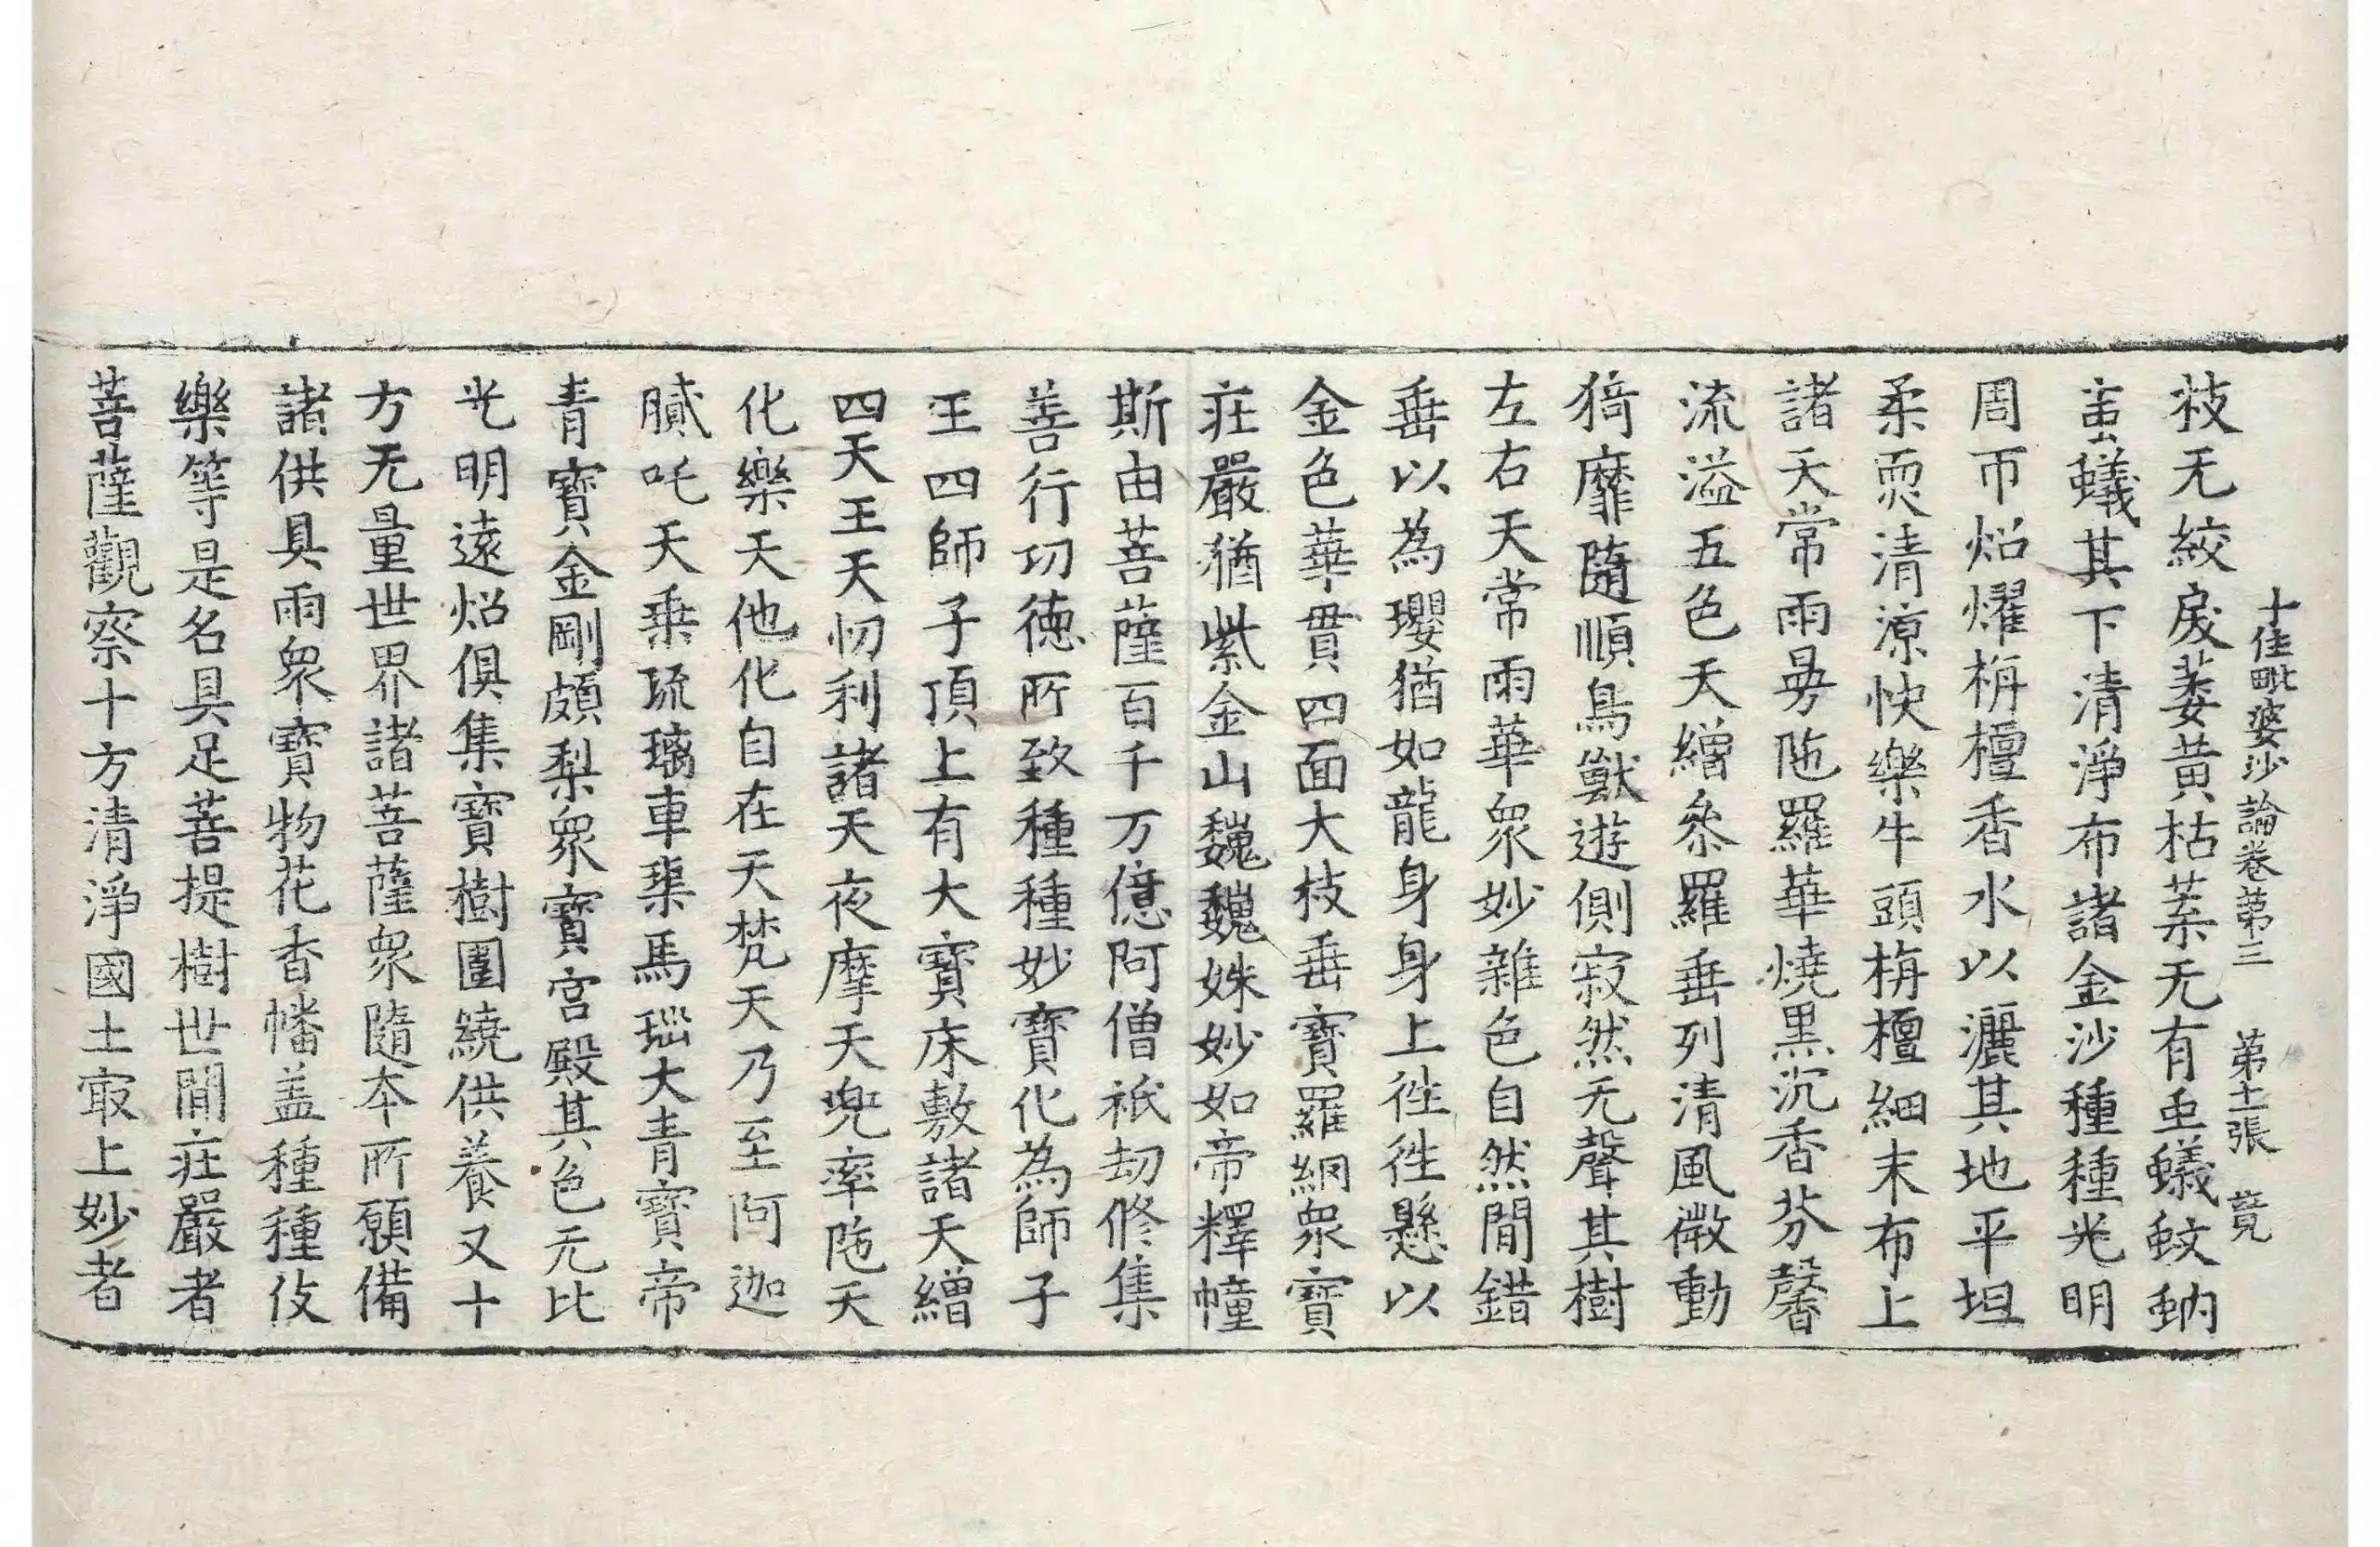 十住毗婆沙論卷第三　第十二張　竟
枝无絞戾萎黃枯葉无有虫蟻蚊蚋
䖟蟻其下清淨布諸金沙種種光明
周帀炤耀栴檀香水以灑其地平坦
柔耎清涼快樂牛頭栴檀細末布上
諸天常雨曼陁羅華燒黒沉香芬馨
流溢五色天繒叅羅垂列清風微動
猗靡隨順鳥獸遊側寂然无聲其樹
左右天常雨華衆妙雜色自然間錯
垂以為瓔猶如龍身身上往往懸以
金色華貫四面大枝垂寶羅網衆寶
莊嚴猶紫金山巍巍姝妙如帝釋幢
斯由菩薩百千万億阿僧祇劫修集
善行功德所致種種妙寶化為師子
王四師子頂上有大寶床敷諸天繒
四天王天忉利諸天夜摩天兜率陁天
化樂天他化自在天梵天乃至阿迦
膩吒天乗琉璃車𤦲馬瑙大青寶帝
青寶金剛頗梨衆寶宮殿其色无比
光明遠炤俱集寶樹圍繞供養又十
方无量世界諸菩薩衆隨本所願備
諸供具雨衆寶物花香幡盖種種伎
樂等是名具足菩提樹世間莊嚴者
菩薩觀察十方清淨國土㝡上妙者